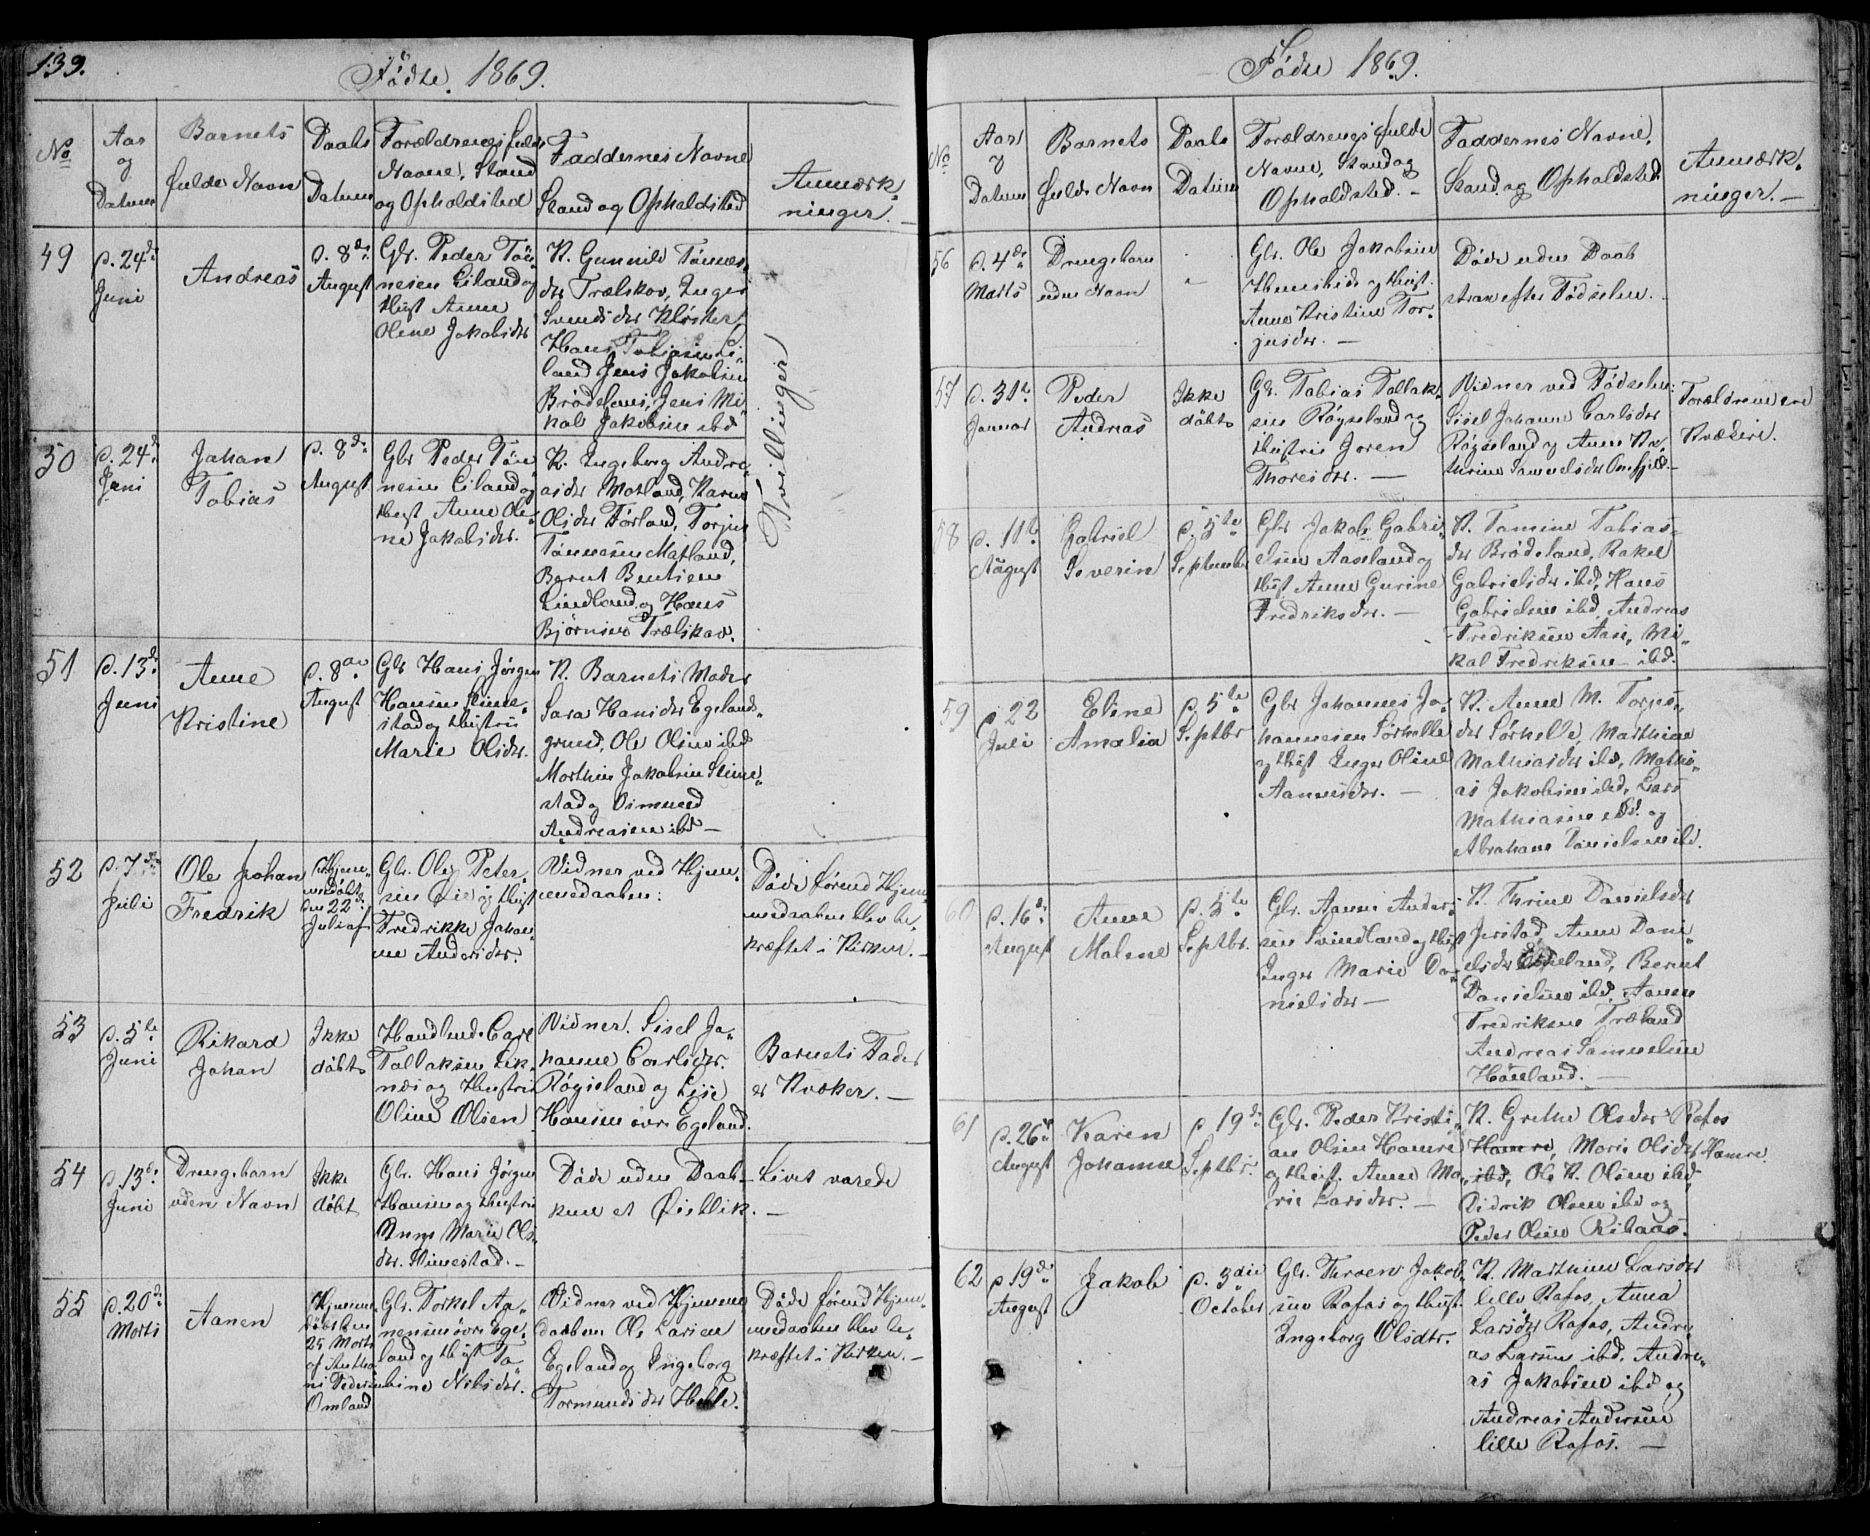 139.
Fødte. 1869.
No
Aar
og
Datum
Barnets
fulde Navn
Daabs
Datum
Forældrenes fulde
Navne, Stand
og Opholdsted
Faddernes Navne
Stand og Opholdsted
Anmærk
ninger. —
49
d. 24de
Juni
Andreas
d. 8de
August
Gbr. Peder Tön
nesen Eiland og
Hust Anne
Olene Jakobsdtr
K. Gunnild Tønnes
dtr Trælskov, Inger
Svendsdtr Kloster,
Hans Tobiasen Ei
land Jens Jakobsen
Brødeland, Jens Mi
kal Jakobsen ibd
Tvillinger
50
d. 24de
Juni
Johan
Tobias
d. 8de
August
Gbr Peder Tön
nesen Eiland og
Hust Anne Ole
ne Jakobsdtr.
K. Ingeborg Andre
asdtr Motland, Karen
Olsdtr Førland, Torjus
Tønnesen Matland,
Bernt Bentsen
Lindland og Hans
Bjørnsen Trælskov.
51
d. 13de
Juni
Anne
Kristine
d. 8de
August
Gbr Hans Jørgen
Hansen Stime
stad og Hustru
Marie Olsdtr.
K. Barnets Moder
Sara Hansdtr Egelands
grund, Ole Olsen ibd
Morthen Jakobsen Stime
stad og Osmund
Andreasen ibd —
52
d. 7de
Juli
Ole Johan
Fredrik
Hjem
medøbt
den 22de
Juli af
Gbr. Ole Peter
sen Lie og Hust
Fredrikke Johan
ne Andersdtr.
Vidner ved Hjem
medaaben:
Døde førend Hjem
medaaben blev be
kræftet i Kirken. —
53
d. 5te
Juni
Rikard
Johan
Ikke
døbt
Handlende Carl
Tollaksen Lek
næs og Hustru
Oline Olsen
Vidner. Sisel Jo
hanne Carlsdtr.
Røgseland og Lise
Hansen övre Egeland.
Barnets Fader
er Kvæker. —
54
d. 13de
Juni
Drengebarn
uden Navn
Ikke
døbt
Gbr. Hans Jørgen
Hansen og Hustru
Anne Marie Ols
dtr. Stimestad. —
Døde uden Daab
kun et Øieblik. —
Livet varede
55
d. 20de
Marts
Aanen
Hjemme
døbt den
25 Marts
af Antho
ni Pedersen
Omland
Gbr. Torkel Aa
nensen övre Ege
land og Hust To
bine Nilsdtr.
Vidner ved Hjemme
daaben Ole Larsen
Egeland og Ingeborg
Tormundsdtr Helle.
Døde førend Hjem
medaaben blev be
kræftet i Kirken. —
Fødte 1869.
No
Aar
og
Datum
Barnets
fulde Navn
Daabs
Datum
Forældrenes fulde
Navne, Stand og
Opholdsted. —
Faddernes Navne,
Stand og Opholdsted.
Anmærk
ninger. —
56
d. 4de
Marts
Drengebarn
uden Navn
Gbr. Ole Jakobsen
og Hust.
Anne Kristine Tor
jusdtr. —
Døde uden Daab
strax efter Fødselen.
57
d. 31te
Januar
Peder
Andreas
Ikke
döbt
Gbr. Tobias Tollak
sen Røgseland og
Hustru Joren
Thoresdtr. —
Vidner ved Fødselen:
Sisel Johanne Carlsdtr
Røgseland og Anne Ka
thrine Samuelsdtr Omsfjeld —
Forældrene ere
Kvækere.
58
d. 11te
August
Gabriel
Severin
d. 5te
September
Gbr Jakob Gabri
elsen Aaseland og
Hust Anne Gurine
Fredriksdtr. —
K. Tomine Tobias
dtr Brødeland, Rakel
Gabrielsdtr ibd, Hans
Gabrielsen ibd, Andreas
Fredriksen Aase, Mi
kal Fredriksen ibd.
59
d 22
Juli
Eline
Amalia
d. 5te
Septbr
Gbr Johannes Jo
hannesen Sörhelle
og Hust Inger Oline
Aanensdtr. —
K. Anne M. Torjus
dtr Sørhelle, Marthine
Mathiasdtr ibd, Mathi
as Jakobsen ibd, Lars
Mathiasen ibd. og
Abraham Danielsen ibd.
60
d. 16de
August
Anne
Malene
d. 5te
Septbr.
Gbr. Aanen Ander
sen Svindland og Hust
Inger Marie Da
nielsdtr —
K. Thrine Danielsdtr
Jerstad, Anne Dani
elsdtr Høieland, Bernt
Danielsen ibd, Aanen
Fredriksen Træland
Andreas Samuelsen
Høieland. —
61
d. 26de
August
Karen
Johanne
d 19de
Septbr.
Gbr. Peder Kristi
an Olsen Hamre
og Hust. Anne Ma
rie Larsdtr. —
K. Grethe Olsdtr Rafos
Hamre, Marie Olsdtr Hamre
ibd, Ole K. Olsen ibd,
Didrik Olsen ibd og
Peder Olsen Ribaas.
62
d 19de
August
Jakob
d. 3die
October
Gbr. Throen Jakob
sen Rafos og Hust.
Ingeborg Olsdtr.
K. Marthine Larsdtr
lille Rafos, Anna
Larsdtr Rafos, Andre
as Larsen ibd, Andre
as Jakobsen ibd og
Andreas Andersen
lille Rafos. —